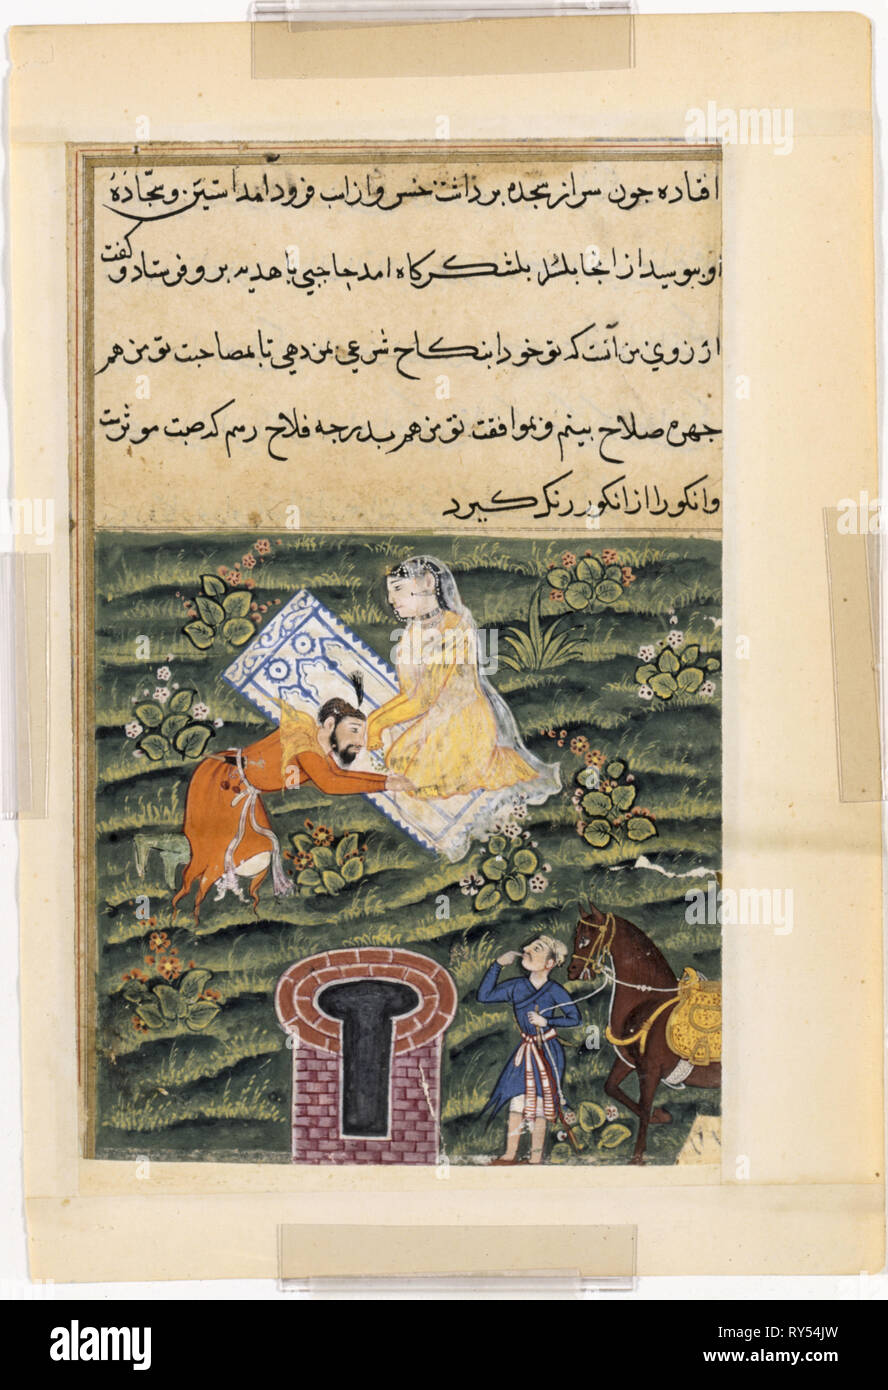 افتاده جون سر از سجده برداشت خسرو از اسب فرود امد استین و سجّادهٔ
او ببوسید از انجا بلشکرکاه امد حاجبی با هدیه برو فرستاد و کفت
ارزوی من آنست که تو خود را بنکاح شرعی بمن دهی تا بمصاحبت تو من هم
جهره صلاح بینم و بموافقت تو من هم بدرجه فلاح رسم که صحبت موثرست
وانکور را از انکور رنک کیرد
alamy
Image ID: RY54JW
www.alamy.com